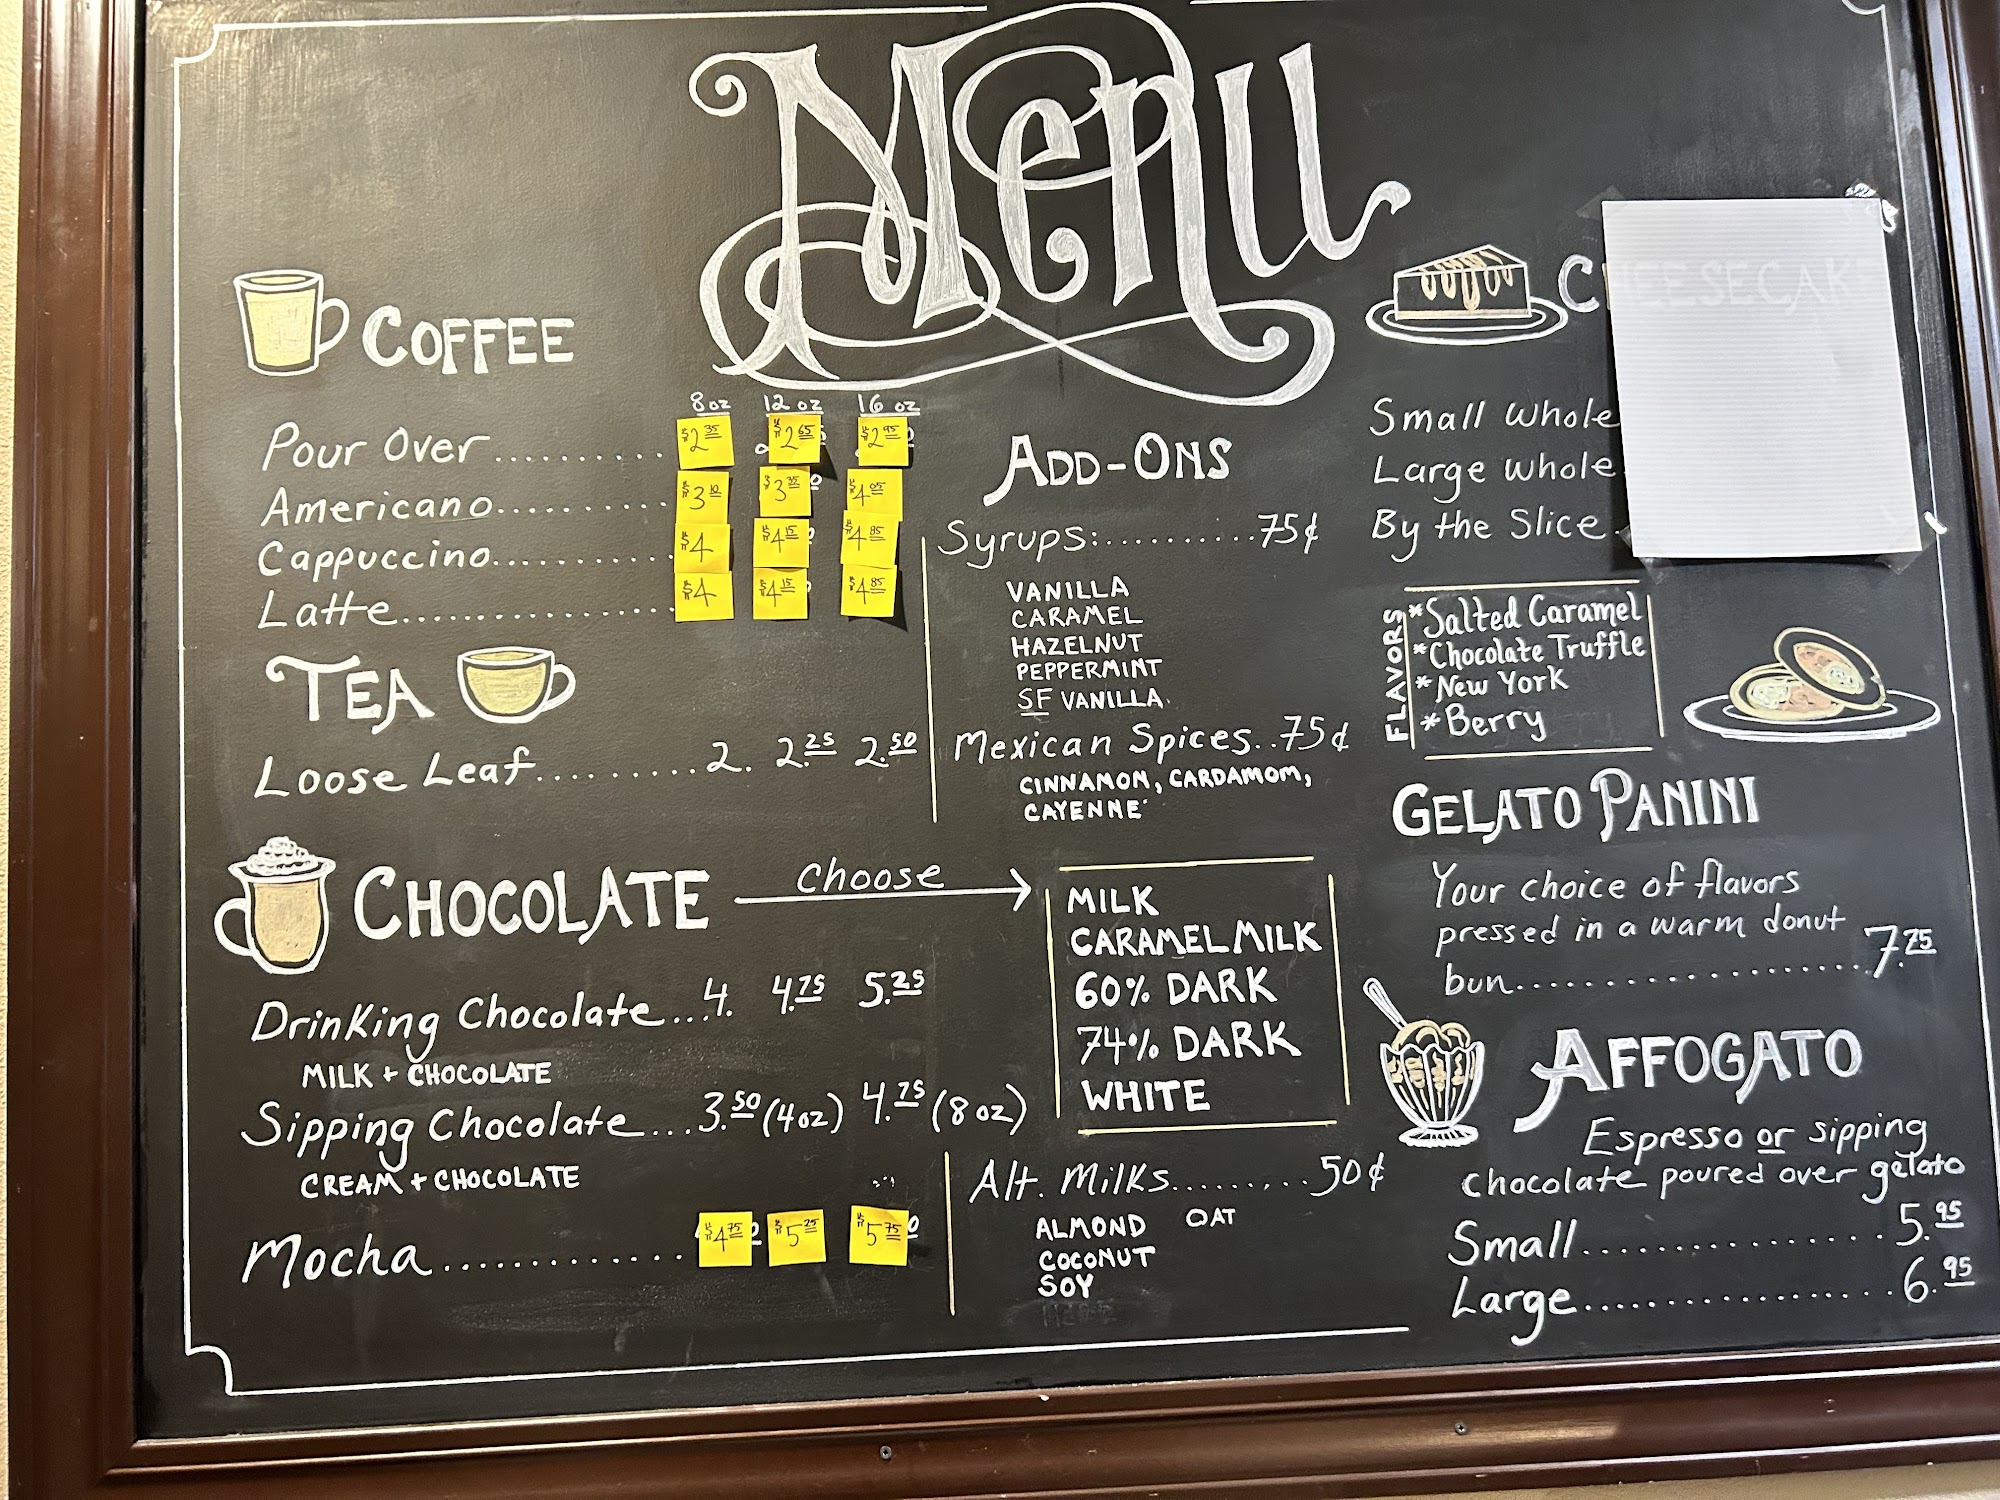 Menu
COFFEE
8 oz 12 oz 16 oz
Pour Over .......... $2 35 $2 65 $2 95
Americano .......... $3 10 $3 35 $4 05
Cappuccino .......... $4 $4 15 $4 85
Latte .............. $4 $4 15 $4 85
TEA
Loose Leaf .......... 2. 2.25 2.50
CHOCOLATE choose
Drinking Chocolate ... 4. 4.75 5.25
MILK + CHOCOLATE
Sipping Chocolate ... 3.50 (4oz) 4.75 (8 oz)
CREAM + CHOCOLATE
Mocha ............. $4 75 $5 25 $5 75
ADD-ONS
Syrups: .......... 75¢
VANILLA
CARAMEL
HAZELNUT
PEPPERMINT
SF VANILLA
Mexican Spices.. 75¢
CINNAMON, CARDAMOM,
CAYENNE
MILK
CARAMEL MILK
60% DARK
74% DARK
WHITE
Alt. Milks ......... 50¢
ALMOND OAT
COCONUT
SOY
CHEESECAK
Small whole
Large whole
By the Slice
FLAVORS
*Salted Caramel
*Chocolate Truffle
*New York
*Berry
GELATO PANINI
Your choice of flavors
pressed in a warm donut
bun .................. 7.25
AFFOGATO
Espresso or sipping
chocolate poured over gelato
Small ................ 5.95
Large ................. 6.95